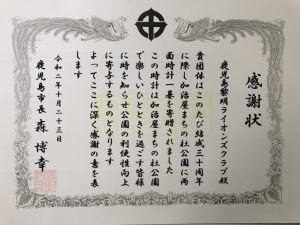 感謝状
鹿児島黎明ライオンズクラブ殿
貴団体はこのたび結成三十周年
に際し加治屋まちの杜公園に両
面時計一基を寄贈されました
この時計は加治屋まちの杜公園
で楽しいひとときを過ごす皆様
に時を知らせ公園の利便性向上
に寄与するものとなります
よってここに深く感謝の意を表
します
令和二年十月二十三日
鹿児島市長 森博幸